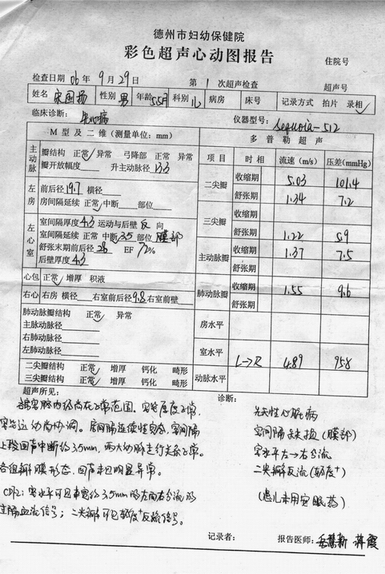 德州市妇幼保健院
彩色超声心动图报告
住院号
检查日期 06 年 9 月 29 日 第 1 次超声检查 超声号
姓名 性别 男 年龄 科别 儿 病房 床号 记录方式 拍片 录相
临床诊断: 仪器型号: Sequoia-512
M 型及二维（测量单位：mm） 多普勒超声
主动脉 瓣结构 正常/异常 弓降部 正常 异常
瓣开放幅度 升主动脉径 13.3
项目 时相 流速(m/s) 压差(mmHg)
左房 前后径 19.7 横径
房间隔延续 正常/中断 部位
二尖瓣 收缩期 5.03 101.4
舒张期 1.34 7.2
左心室 室间隔厚度 4.3 运动与后壁 反 向
室间隔延续 正常 中断 3.5 部位 膜部
舒张末期前后径 28 EF 72%
后壁厚度 4.3
三尖瓣 收缩期
舒张期 1.22 5.9
主动脉瓣 收缩期 1.37 7.5
舒张期
心包 正常/增厚 积液
右心 右房 横径 右室前后径 9.8 右室前壁
肺动脉瓣 收缩期 1.55 9.6
舒张期
肺动脉瓣结构 正常/异常
主肺动脉径
右肺动脉径
左肺动脉径
房水平
室水平 L→R 4.89 95.8
动脉水平
二尖瓣结构 正常/增厚 钙化 畸形
三尖瓣结构 正常/增厚 钙化 畸形
超声所见: 诊断:
各房室腔内径尚在正常范围。室壁厚度正常,
室壁运动尚协调。房间隔连续性完整,室间隔
上段回声中断约3.5mm,两大动脉走行关系正常。
各组瓣膜形态、回声未见明显异常。
CDFI: 室水平可见束宽约3.5mm的左向右分流
血流信号;二尖瓣可见轻度+反流信号。
先天性心脏病
室间隔缺损（膜部）
室水平左→右分流
二尖瓣反流（轻度+）
（患儿未用安眠药）
记录者: 报告医师: